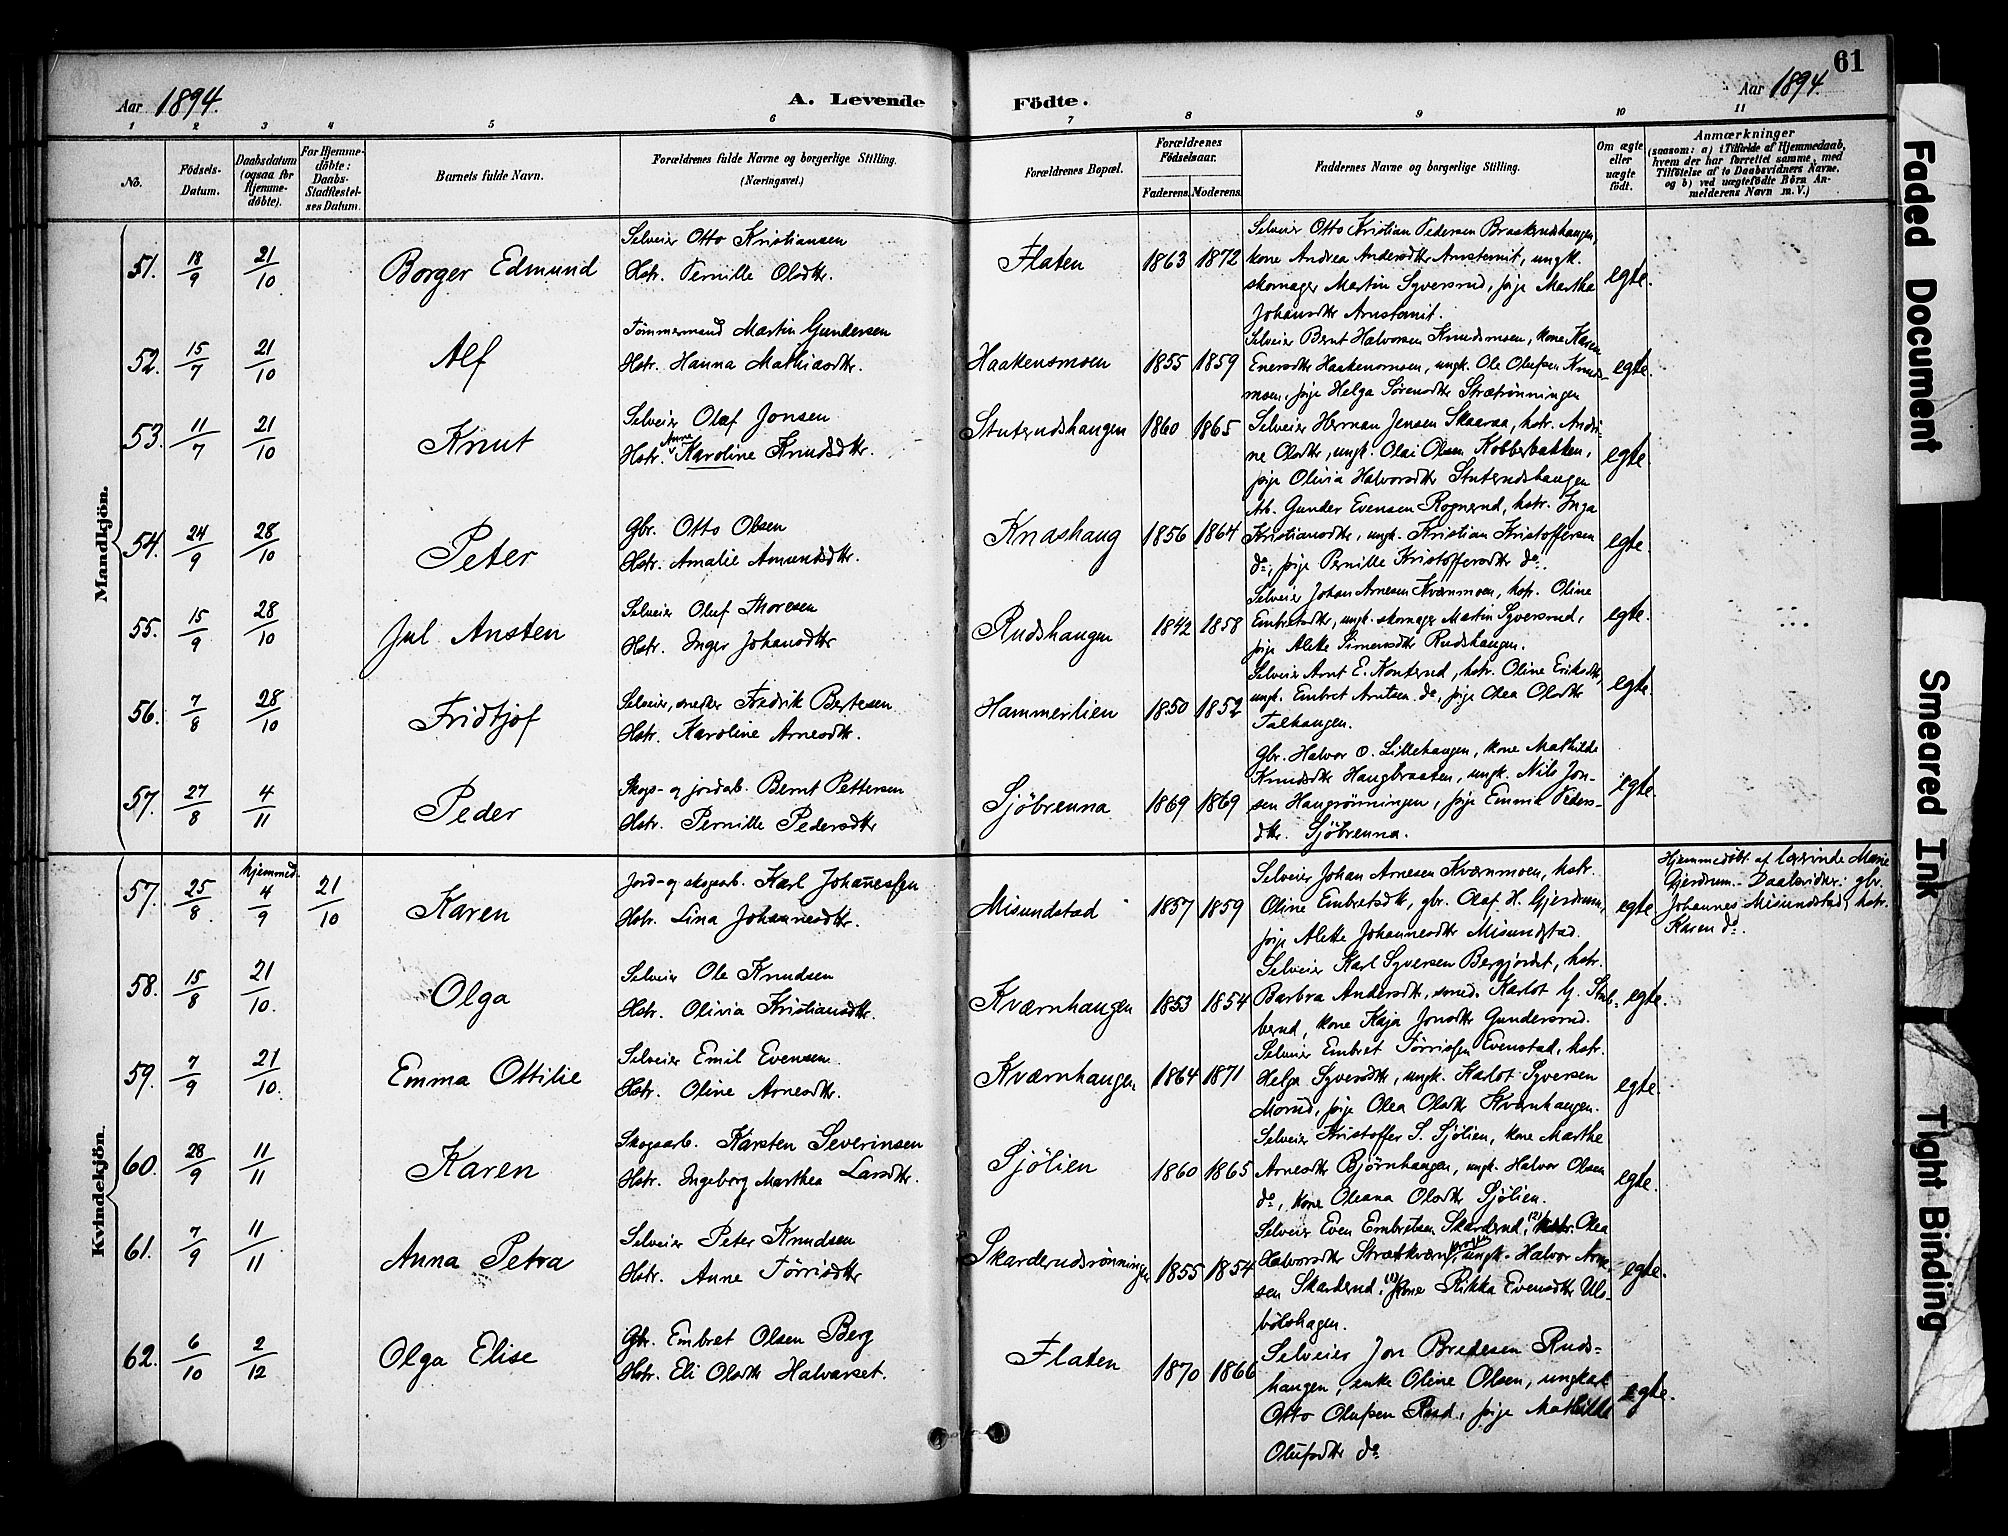 61
Aar 1894.
A. Levende Födte.
Aar 1894.
1 2 3 4 5 6 7 8 9 10 11
No.
Födsels-Datum.
Daabsdatum (ogsaa for Hjemme-döbte).
For Hjemme-döbte: Daabs-Stadfæstelses Datum.
Barnets fulde Navn.
Forældrenes fulde Navne og borgerlige Stilling. (Næringsvei.)
Forældrenes Bopæl.
Forældrenes Födselsaar.
Faderens. Moderens.
Faddernes Navne og borgerlige Stilling.
Om ægte eller uægte födt.
Anmærkninger
(saasom: a) i Tilfælde af Hjemmedaab, hvem der har forrettet samme, med Tilföielse af to Daabsvidners Navne, og b) ved uægtefödte Börn Anmelderens Navn m. V.)
Mandkjön.
51. 18/9 21/10 Borger Edmund
Selveier Otto Kristiansen
Hstr. Pernille Olsdtr.
Flaten 1863 1872
Selveier Otto Kristian Pedersen Braskerudhaugen,
kone Andrea Andersdtr Arnstomt, ungk.
skomager Martin Syversrud, pige Martha
Johansdtr Arnstomt.
egte.
52. 15/7 21/10 Alf
Tømmermand Martin Gundersen
Hstr. Hanna Mathiasdtr.
Haakensmoen 1855 1859
Selveier Bernt Halvorsen Knudsmoen, kone Karen
Enersdtr Haakensmoen, ungk. Ole Olufsen Knuds-
moen, pige Helga Sørensdtr Strætrønningen
egte.
53. 11/7 21/10 Knut
Selveier Olaf Jonsen
Hstr. Anne Karoline Knudsdtr.
Stuterudshaugen 1860 1865
Selveier Herman Jensen Skaaraa, hstr. Andri-
ne Olsdtr, ungk. Olai Olsen Kobberbakken,
pige Olivia Halvorsdtr Stuterudshaugen
egte.
54. 24/9 28/10 Peter
Gbr. Otto Olsen
Hstr. Amalie Amundsdtr.
Knashaug 1856 1864
Arb. Gunder Evensen Rognerud, hstr. Inga
Kristiansdtr, ungk. Kristian Kristoffersen
do, pige Pernille Kristoffersdtr do.
egte.
55. 15/9 28/10 Jul Ansten
Selveier Oluf Thoresen
Hstr. Inger Johansdtr
Rudshaugen 1842 1858
Selveier Johan Arnesen Kværnmoen, hstr. Oline
Embretsdtr, ungk. skomager Martin Syversrud,
pige Alette Simensdtr Rudshaugen.
egte.
56. 7/8 28/10 Fridtjof
Selveier, snedker Fredrik Bertesen
Hstr. Karoline Arnesdtr.
Hammerlien 1850 1852
Selveier Arnt E. Konterud, hstr. Oline Eriksdtr,
ungk. Embret Arntsen do, pige Olea Olsdtr
Falhaugen.
egte.
57. 27/8 4/11 Peder
Skogs- og jordarb. Bernt Pettersen
Hstr. Pernille Pedersdtr
Sjöbrenna 1869 1869
Gbr. Halvor O. Lillehaugen, kone Mathilde
Knudsdtr Haugbraaten, ungk. Nils Jon-
sen Haugrønningen, pige Emma Peders-
dtr. Sjöbrenna.
egte.
Kvindekjön.
57. 25/8 hjemmed. 4/9 21/10 Karen
Jord- og skogsarb. Karl Johannessen
Hstr. Lina Johannesdtr.
Misundstad 1857 1859
Selveier Johan Arnesen Kværnmoen, hstr.
Oline Embretsdtr, gbr. Olaf H. Gjerdrum,
pige Alette Johannesdtr Misundstad.
egte
Hjemmedöbt af lærerinde Marie
Gjerdrum. Daabsvidner: gbr.
Johannes Misundstad, hstr.
Karen do.
58. 15/8 21/10 Olga
Selveier Ole Knudsen
Hstr. Olivia Kristiansdtr.
Kværnhaugen 1853 1854
Selveier Karl Syversen Bergjordet, hstr.
Barbra Andersdtr, smed. Karlot G. Stub-
berud, kone Kaja Jonsdtr Gundersrud.
egte.
59. 7/9 21/10 Emma Ottilie
Selveier Emil Evensen
Hstr. Oline Arnesdtr.
Kværnhaugen 1864 1871
Selveier Embret Tørrissen Evenstad, hstr.
Helga Syversdtr, ungk. Karlot Syversen
Morud, pige Olea Olsdtr Kværnhaugen.
egte.
60. 28/9 11/11 Karen
Skogsarb. Karsten Severinsen
Hstr. Ingeborg Marthea Larsdtr.
Sjölien 1860 1865
Selveier Kristoffer S. Sjölien, kone Marthe
Arnesdtr Bjørnhaugen, ungk. Halvor Olsen
do, kone Oleana Olsdtr Sjölien.
egte.
61. 7/9 11/11 Anna Petra
Selveier Peter Knudsen
Hstr. Anne Törrisdtr
Skarderudsrönningen 1855 1854
Selveier Even Embretsen Skarderud, hstr. Olea
Halvorsdtr Strætkværn, ungk. Halvor Arne-
sen Skarderud, kone Rikka Evensdtr Uls-
bölshagen.
egte.
62. 6/10 2/12 Olga Elise
Gbr. Embret Olsen Berg
Hstr. Eli Olsdtr Halvarset.
Flaten 1870 1866
Selveier Jon Bredesen Ruds-
haugen, enke Oline Olsen, ungkarl
Otto Olufsen Rud, pige Mathilde
Olufsdtr do
egte.
Faded Document
Smeared Ink
Tight Binding